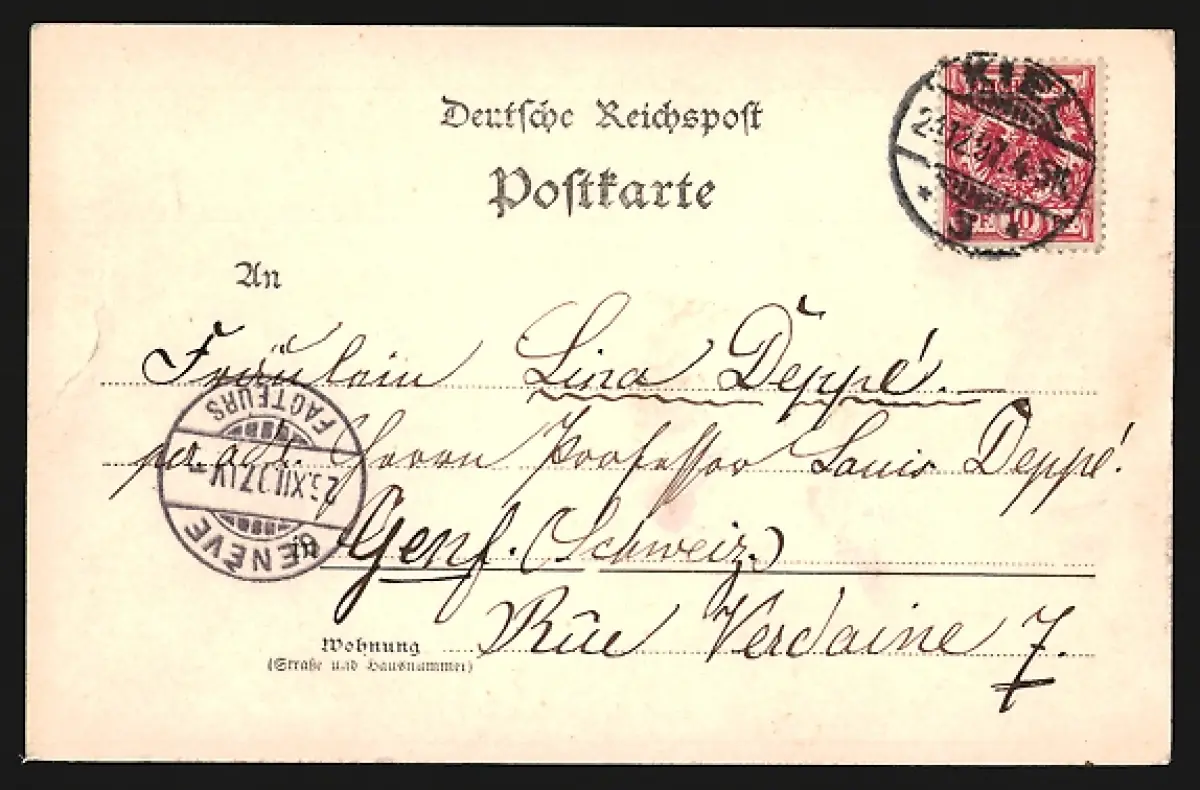 Deutsche Reichspost
Postkarte
KIEL
12.97. 4-5N.
* 3 *
PF. 10 PF.
An
Fräulein Lina Deppé.
per adr. Herrn Professor Louis Deppé.
FACTEURS
XII.97
GENÈVE
Genf. (Schweiz.)
Wohnung Rûe Verdaine 7.
(Straße und Hausnummer)